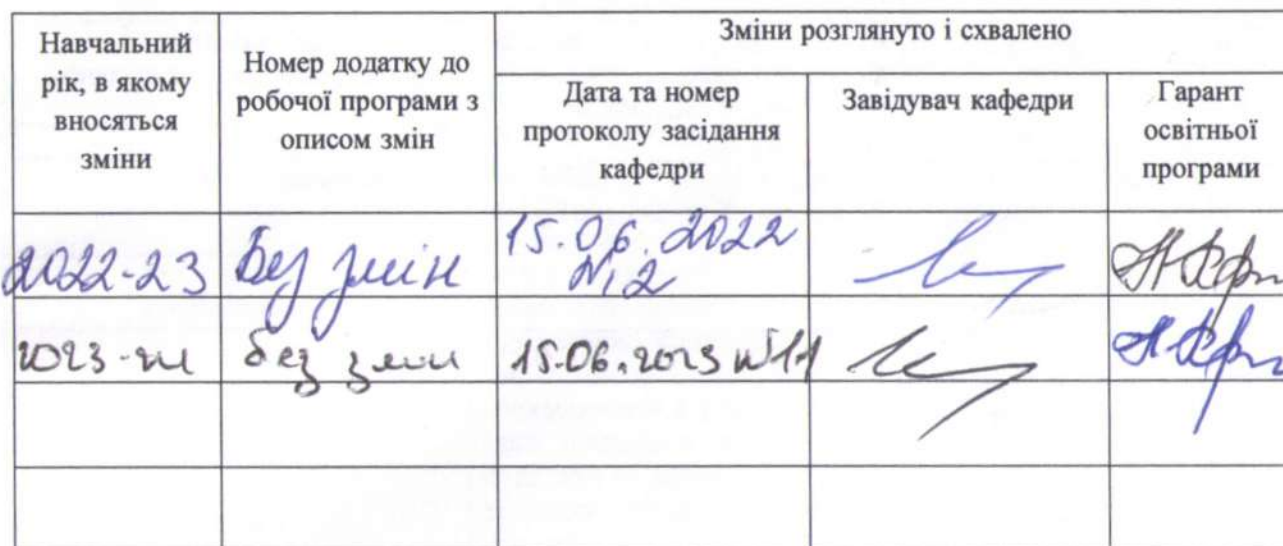 Навчальний
рік, в якому
вносяться
зміни
Номер додатку до
робочої програми з
описом змін
Зміни розглянуто і схвалено
Дата та номер
протоколу засідання
кафедри
Завідувач кафедри
Гарант
освітньої
програми
2022-23
Без змін
15.06.2022
№12
2023-24
без змін
15.06.2023 №11